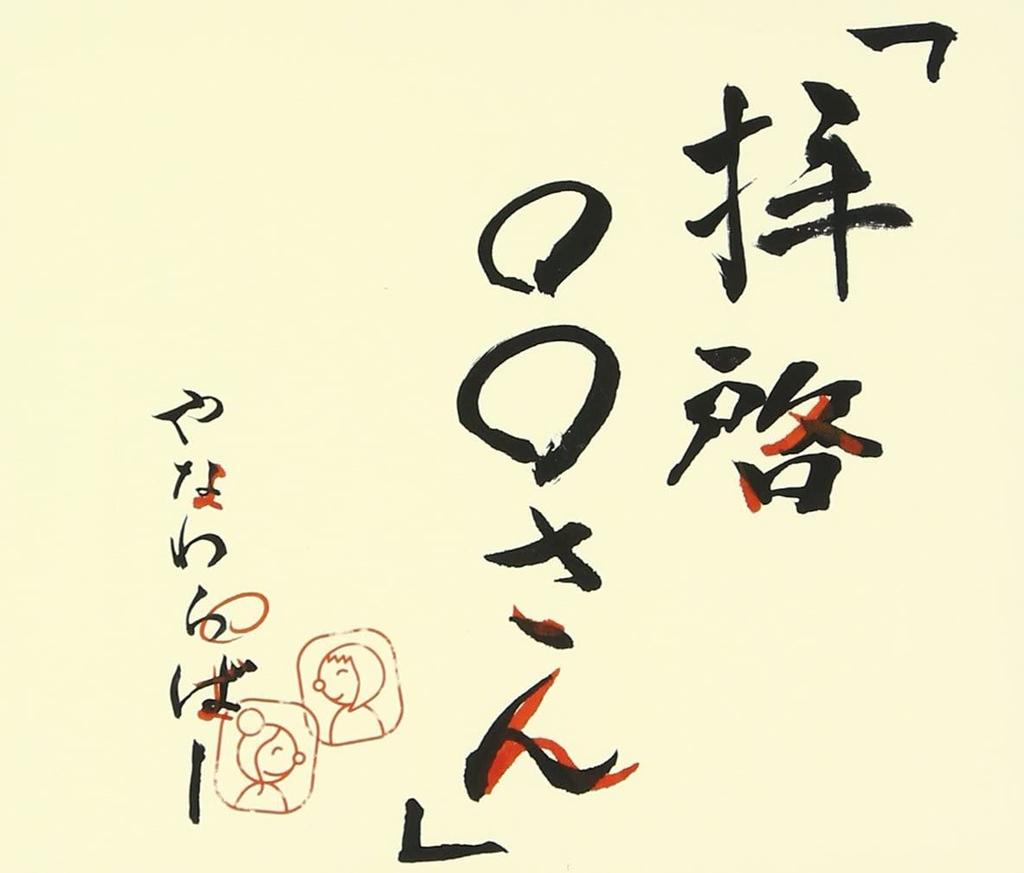 「拝啓
〇〇さん」
やなわらばー